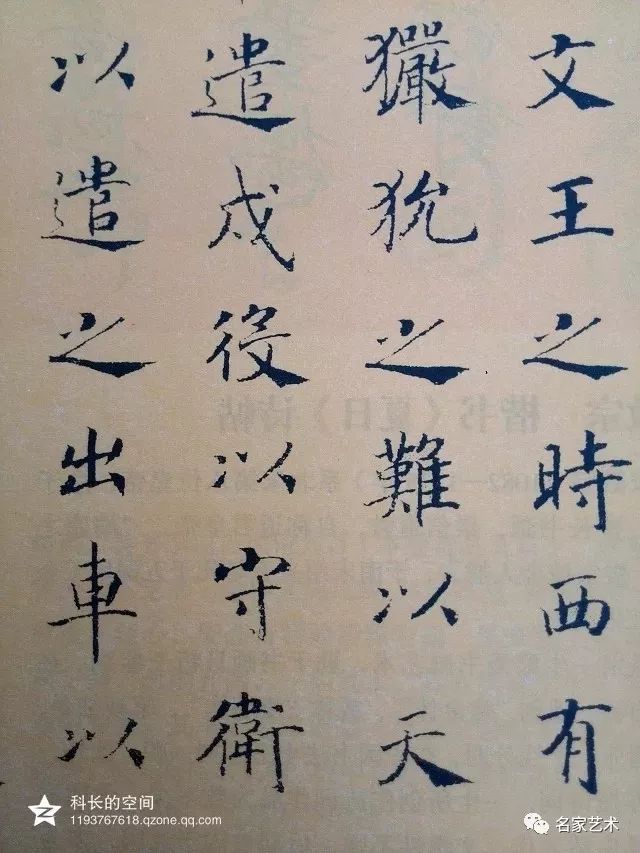 文王之時西有
玁狁之難以天
遣戍役以守衛
以遣之出車以
科长的空间
1193767618.qzone.qq.com
名家艺术